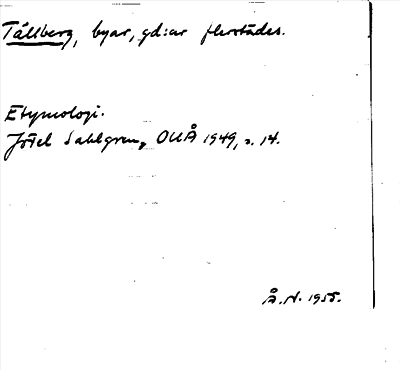 Tällberg, byar, gd:ar flerstädes.
Etymologi.
Jöran Sahlgren, OUÅ 1949, s. 14.
Å.N. 1955.